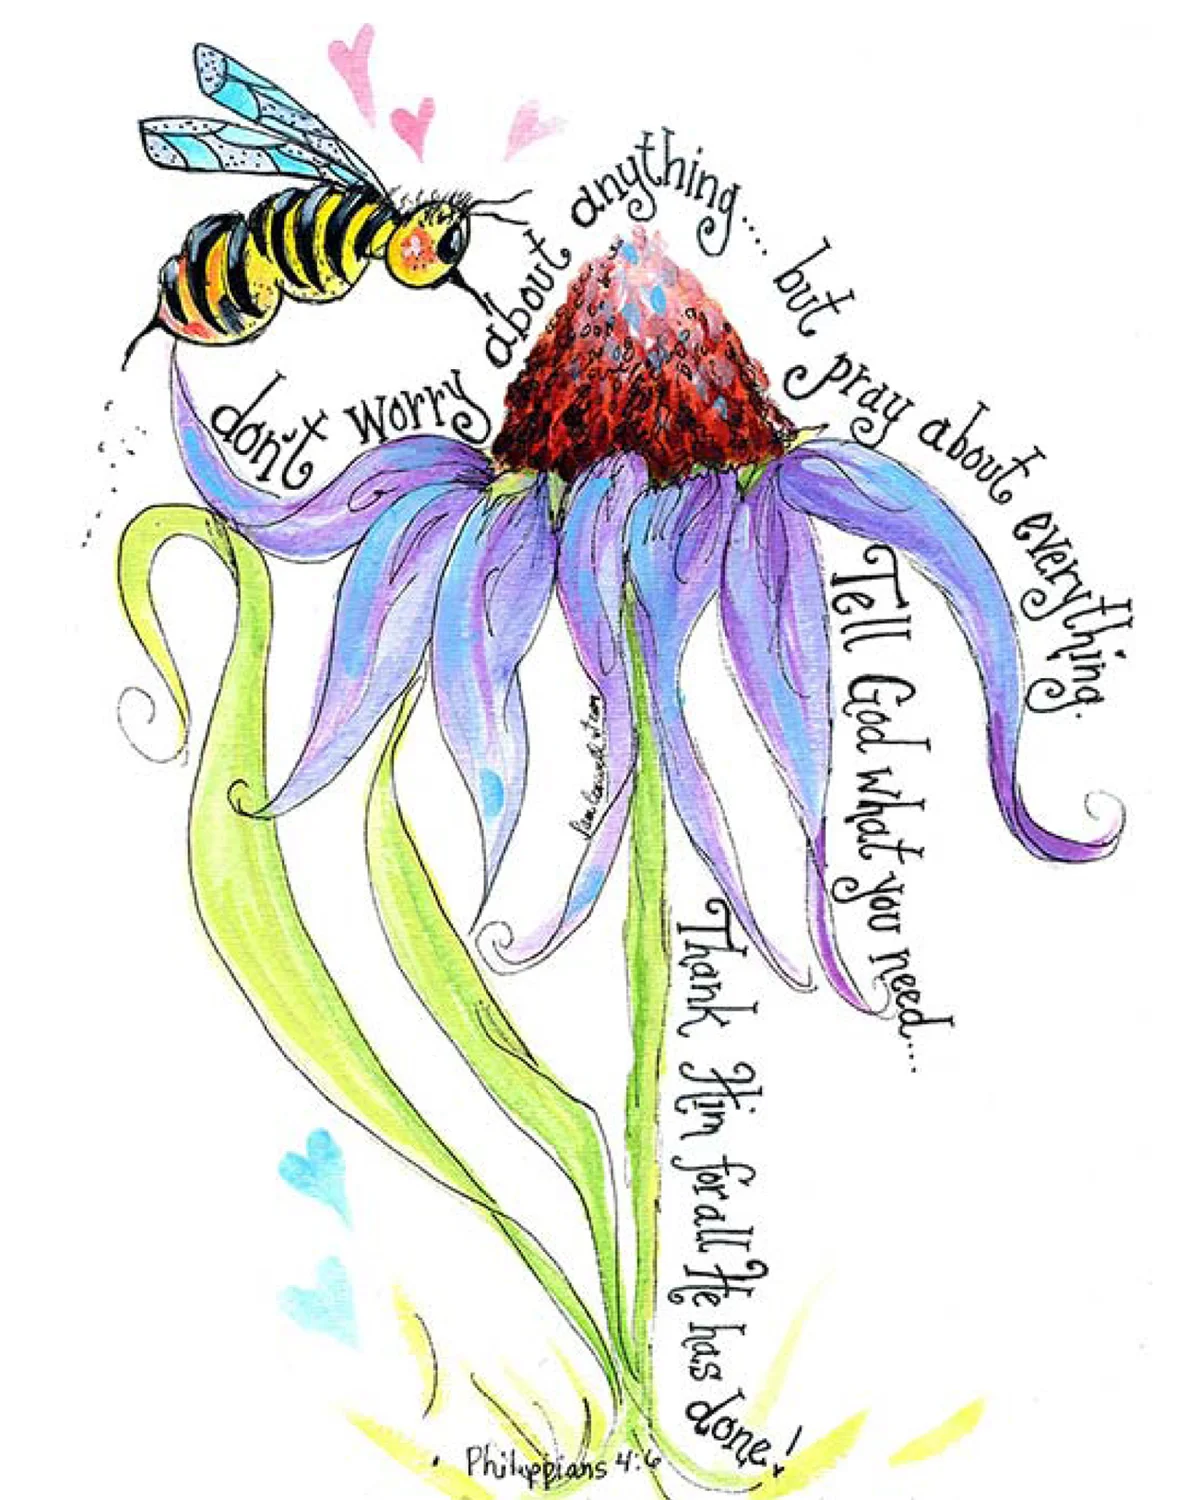 don't worry about anything.... but pray about everything.
Tell God what you need....
Thank Him for all He has done!
Philippians 4:6